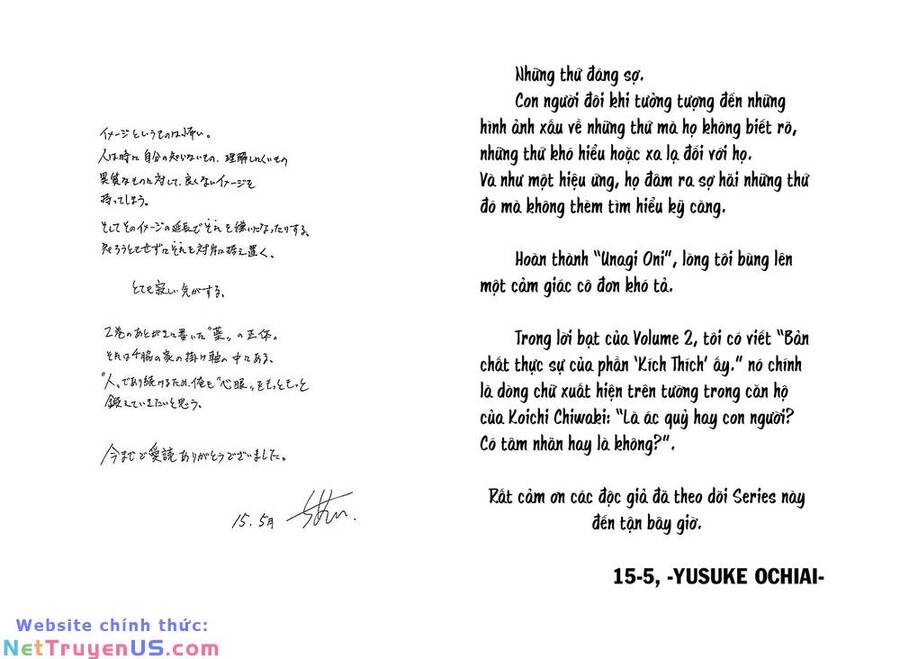 イメージというものは怖い。
人は時に自分の知らないもの、理解しにくいもの
異質なものに対して、良くないイメージを
持ってしまう。
そしてそのイメージの延長でそれを嫌いになったりする、
知ろうとせずにそれを対岸に据え置く、
とても寂しい気がする、
2巻のあとがきに書いた"薬"の正体。
それは千脇の家の掛け軸の中にある、
"人"であり続けるため、俺も"心眼"をもっともっと
鍛えていきたいと思う、
今まで愛読ありがとうございました。
15.5月
Những thứ đáng sợ.
Con người đôi khi tưởng tượng đến những
hình ảnh xấu về những thứ mà họ không biết rõ,
những thứ khó hiểu hoặc xa lạ đối với họ.
Và như một hiệu ứng, họ đâm ra sợ hãi những thứ
đó mà không thèm tìm hiểu kỹ càng.
Hoàn thành "Unagi Oni", lòng tôi bùng lên
một cảm giác cô đơn khó tả.
Trong lời bạt của Volume 2, tôi có viết "Bản
chất thực sự của phần 'Kích Thích' ấy." nó chính
là dòng chữ xuất hiện trên tường trong căn hộ
của Koichi Chiwaki: "Là ác quỷ hay con người?
Có tâm nhãn hay là không?".
Rất cảm ơn các độc giả đã theo dõi Series này
đến tận bây giờ.
15-5, -YUSUKE OCHIAI-
Website chính thức:
NetTruyenUS.com